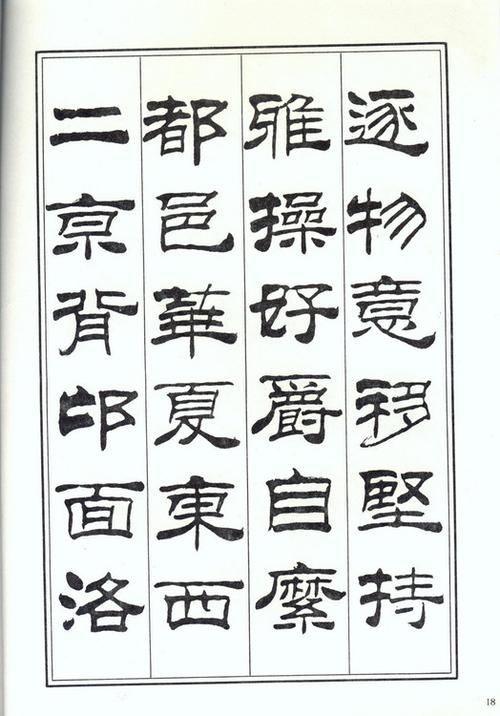 逐物意移堅持
雅操好爵自縻
都邑華夏東西
二京背邙面洛
18